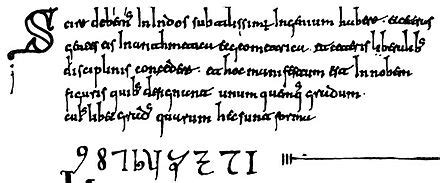 Scire debemꝰ In Indos subtilissimũ Ingenium habere . et ceteras
gentes eis In arithmetica et geometrica . et ceteris liberalibꝰ
disciplinis concedere . et hoc manifestum est In nobem
figuris quibꝰ designant unum quemqꝫ gradum .
cuiꝰlibet gradꝰ quarum hec sunt forma
9 8 7 6 5 4 3 2 1